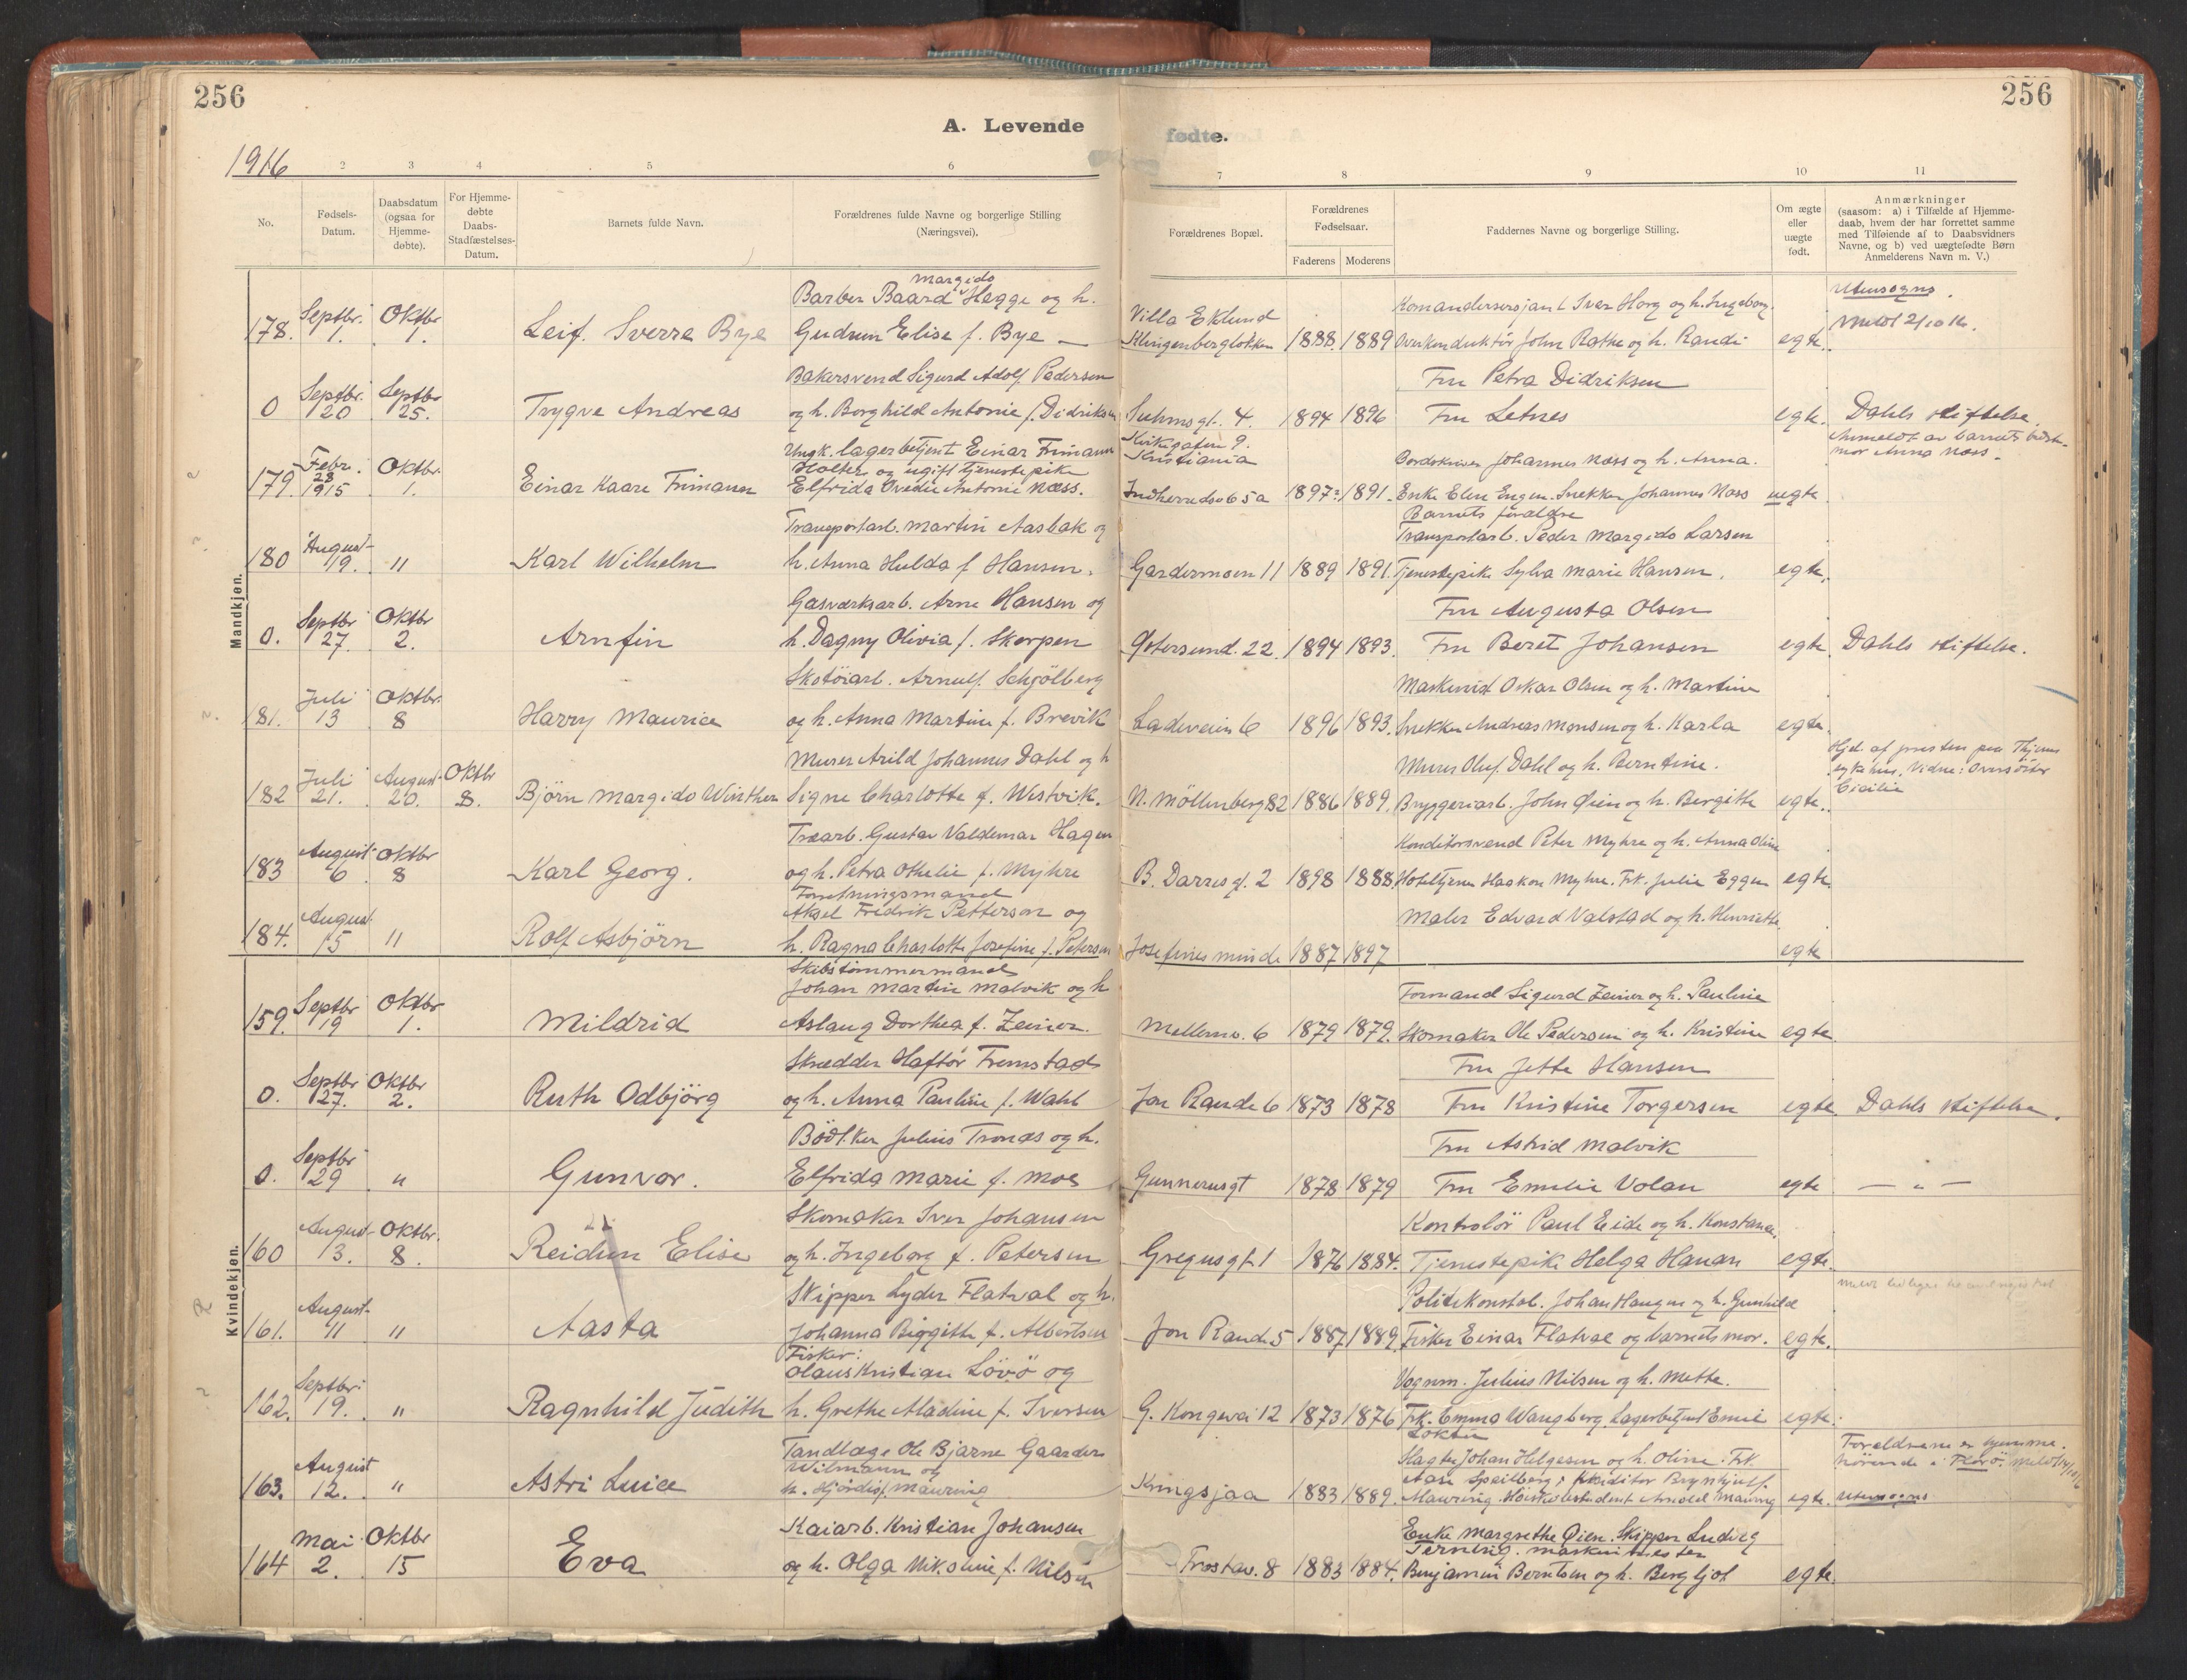 256
256
A. Levende
fødte.
1916
2 3 4 5 6 7 8 9 10 11
No.
Fødsels-
Datum.
Daabsdatum
(ogsaa for
Hjemme-
døbte).
For Hjemme-
døbte
Daabs-
Stadfæstelses-
Datum.
Barnets fulde Navn.
Forældrenes fulde Navne og borgerlige Stilling
(Næringsvei).
Forældrenes Bopæl.
Forældrenes
Fødselsaar.
Faderens
Moderens
Faddernes Navne og borgerlige Stilling.
Om ægte
eller
uægte
født.
Anmærkninger
(saasom: a) i Tilfælde af Hjemme-
daab, hvem der har forrettet samme
med Tilføiende af to Daabsvidners
Navne, og b) ved uægtefødte Børn
Anmelderens Navn m. V.)
Mandkjøn.
Margido
Barber Baard Hegge og h. Komandersersjant Iver Horg og h. Ingeborg. Utensogns.
178. Septbr. 1. Oktbr 1. Leif Sverre Bye Gudrun Elise f. Bye — Villa Eklund Klingenbergløkken 1888. 1889 Overkonduktör John Rathe og h. Randi egte. Meldt 2/10 16.
Bakersvend Sigurd Adolf Pedersen Fru Petra Didriksen
0 Septbr. 20 Septbr 25. Trygve Andreas og h. Borghild Antonie f. Didriksen Suhmsgt. 4. 1894 1896 Fru Letnes egte. Dahls stiftelse.
Ungk. lagerbetjent Einar Frimann Kirkegaten 9. Kristiania Anmeldt av barnets bedste-
Holter og ugift tjenestepike Bordskriver Johannes Næss og h. Anna. mor Anna Næss.
179. Febr. 28 1915 Oktbr. 1. Einar Kaare Frimann Elfrida Ovedie Antonie Næss. Indherredsv 65a 1897. 1891. Enke Elen Engen. Snekker Johannes Næss uegte
Barnets forældre
Transportarb. Martin Aasbak og Transportarb. Peder Margido Larsen
180 August 19. " Karl Wilhelm h. Anna Hulda f Hansen. Gardermoen 11 1889 1891. Tjenestepike Sylva Marie Hansen. egte.
Gasværksarb. Arne Hansen og Fru Augusta Olsen
0. Septbr 27. Oktbr 2. Arnfin h. Dagny Olivia f. Skerpen Østersund. 22. 1894 1893. Fru Beret Johansen egte. Dahls stiftelse.
Skotöiarb. Arnulf Schjölberg Maskinist Oskar Olsen og h. Martine
181. Juli 13 Oktbr. 8 Harry Maurice og h. Anna Martine f. Brevik Ladeveien 6 1896 1893. Snekker Andreas Monsen og h. Karla egte.
Murer Arild Johannes Dahl og h Murer Oluf Dahl og h. Berntine. Hjd. af presten paa
sykehus. Vidne: Oversöster
182 Juli 21. August 20. Oktbr 8. Björn Margido Winther Signe Charlotte f. Westvik. N. Möllenberg 82 1886 1889. Bryggeriarb. John Øien og h. Bergitte egte. Cicilie
Træarb. Gustav Valdemar Hagen Konditorsvend Peter Myhre og h. Anna Oline
183 August 6 Oktbr 8 Karl Georg. og h. Petra Othelie f. Myhre B. Darresgt. 2 1898 1888 Hoteltjener Haakon Myhre. Frk. Julie Eggen egte.
Forretningsmand
Aksel Fredrik Petterson og Maler Edvard Valstad og h. Henriette
184. August 15 " Rolf Asbjörn h. Ragna Charlotte Josefine f. Petersen Josefines minde 1887 1897 egte
Kvindekjøn.
Skibstömmermand
Johan Martin Malvik og h Formand Sigurd Zeiner og h. Pauline
159. Septbr 19 Oktbr 1. Mildrid Aslaug Dorthea f. Zeiner. Mellemv. 6 1879 1879. Skomaker Ole Pedersen og h. Kristine egte.
Skrædder Haftor Fremstad Fru Jette Hansen
0. Septbr 27. Oktbr 2. Ruth Odbjörg og h. Anna Pauline f. Wahl Jon Raude 6 1873 1878 Fru Kristine Torgersen egte Dahls stiftelse.
Bödker Julius Tronæs og h. Fru Astrid Malvik
0. Septbr 29 " Gunvor. Elfrida Marie f. Moe Gunnerusgt 1878 1879 Fru Emelie Volan egte — " —
Skomaker Iver Johansen Kontrolör Paul Eide og h. Konstance.
160 August 13. Oktbr. 8. Reidun Elise og h. Ingeborg f. Petersen Gregusgt 1 1876 1884. Tjenestepike Helga Hanan egte.
Skipper Lyder Flatval og h. Politikonstab. Johan Haugen og h. Gunhild
161. August 11 " Aasta Johanna Birgitte f. Albertsen Jon Raude 5 1887 1889. Fisker Einar Flatval og barnets mor. egte.
Fisker:
Olaus Kristian Lövö og Vognm. Julius Nilsen og h. Mette.
162. Septbr: 19. " Ragnhild Judith h. Grethe Aladine f. Iversen G. Kongevei 12 1873 1876 Frk. Emma Wangberg. Lagerbetjent Emil egte.
Loktu
Tandlæge Ole Bjarne Gaarder Slagter Johan Helgesen og h. Oline. Frk. Foreldrene er hjemme-
Wilmann og Aase Speilberg; Brynhjulf. hörende i Florö. Meldt 14/10 16
163. August 12. " Astri Luice h. Hjördis f. Mauring Kringsjaa 1883 1889. Mauring. Höiskolestudent Arnold Mauring egte. Utensogns
Kaiarb. Kristian Johansen Enke Margrethe Øien. Skipper Ludvig
Ternvig. Maskinmester
164 Mai 2. Oktbr 15 Eva og h. Olga Nikoline f. Nilsen Frostav. 8 1883 1884. Benjamin Berntsen og h. Bergljot egte.